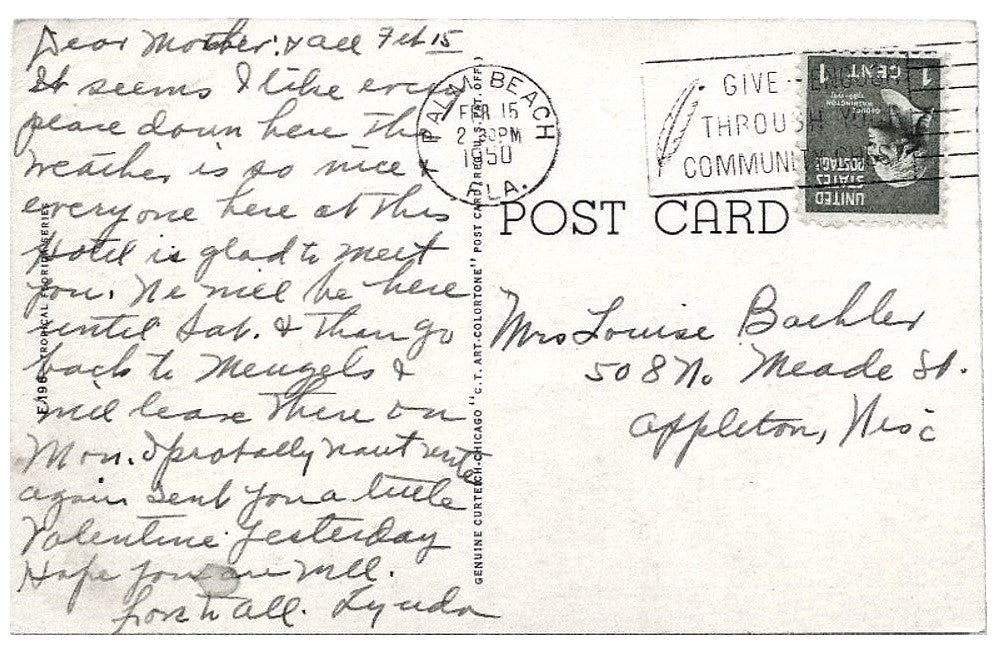 Dear Mother & all Feb 15
It seems I like every
place down here The
weather is so nice &
everyone here at this
Hotel is glad to meet
you. We will be here
until Sat. & than go
back to Mengels &
will leave there on
Mon. I probably wont write
again sent you a little
Valentine yesterday
Hope you are well.
love to all. Lynda
E-196 TROPICAL FLORIDA SERIES
GENUINE CURTEICH-CHICAGO "C. T. ART-COLORTONE" POST CARD (REG. U. S. PAT. OFF.)
PALM BEACH
FEB 15
2 30PM
1950
FLA.
GIVE
THROUGH YOUR
COMMUNITY
1 CENT 1
GEORGE WASHINGTON
UNITED
STATES
POSTAGE
POST CARD
Mrs Louise Baehler
508 No. Meade St.
Appleton, Wisc